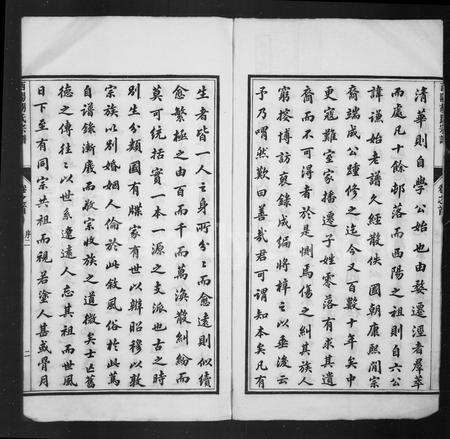 清華則自學公始也由婺遷涇者羣萃
而處凡十餘邨落而西陽之祖則自六公
諱謙始老譜久經散佚國朝康熙間宗
裔端成公踵修之迄今又百數十年矣中
更寇難室家播遷子姓零落有求其遺
裔而不可得者於是惻焉傷之糾其族人
窮搜博訪裒錄成編將梓之以垂後云
予乃喟然歎曰善哉君可謂知本矣凡有
生者皆一人之身所分也分而愈遠則似續
愈繁極之由百而千而萬渙散糾紛而
莫可統括實一本一源之支派也古之時
別生分類國有牒家有世以辨昭穆以敦
宗族以別婚姻人倫於此敘風俗於此篤
自譜錄漸廢而敬宗收族之道微矣士亡舊
德之傳往往以世系遼遠人忘其祖而世風
日下至有同宗共祖而視若塗人甚或骨月
二